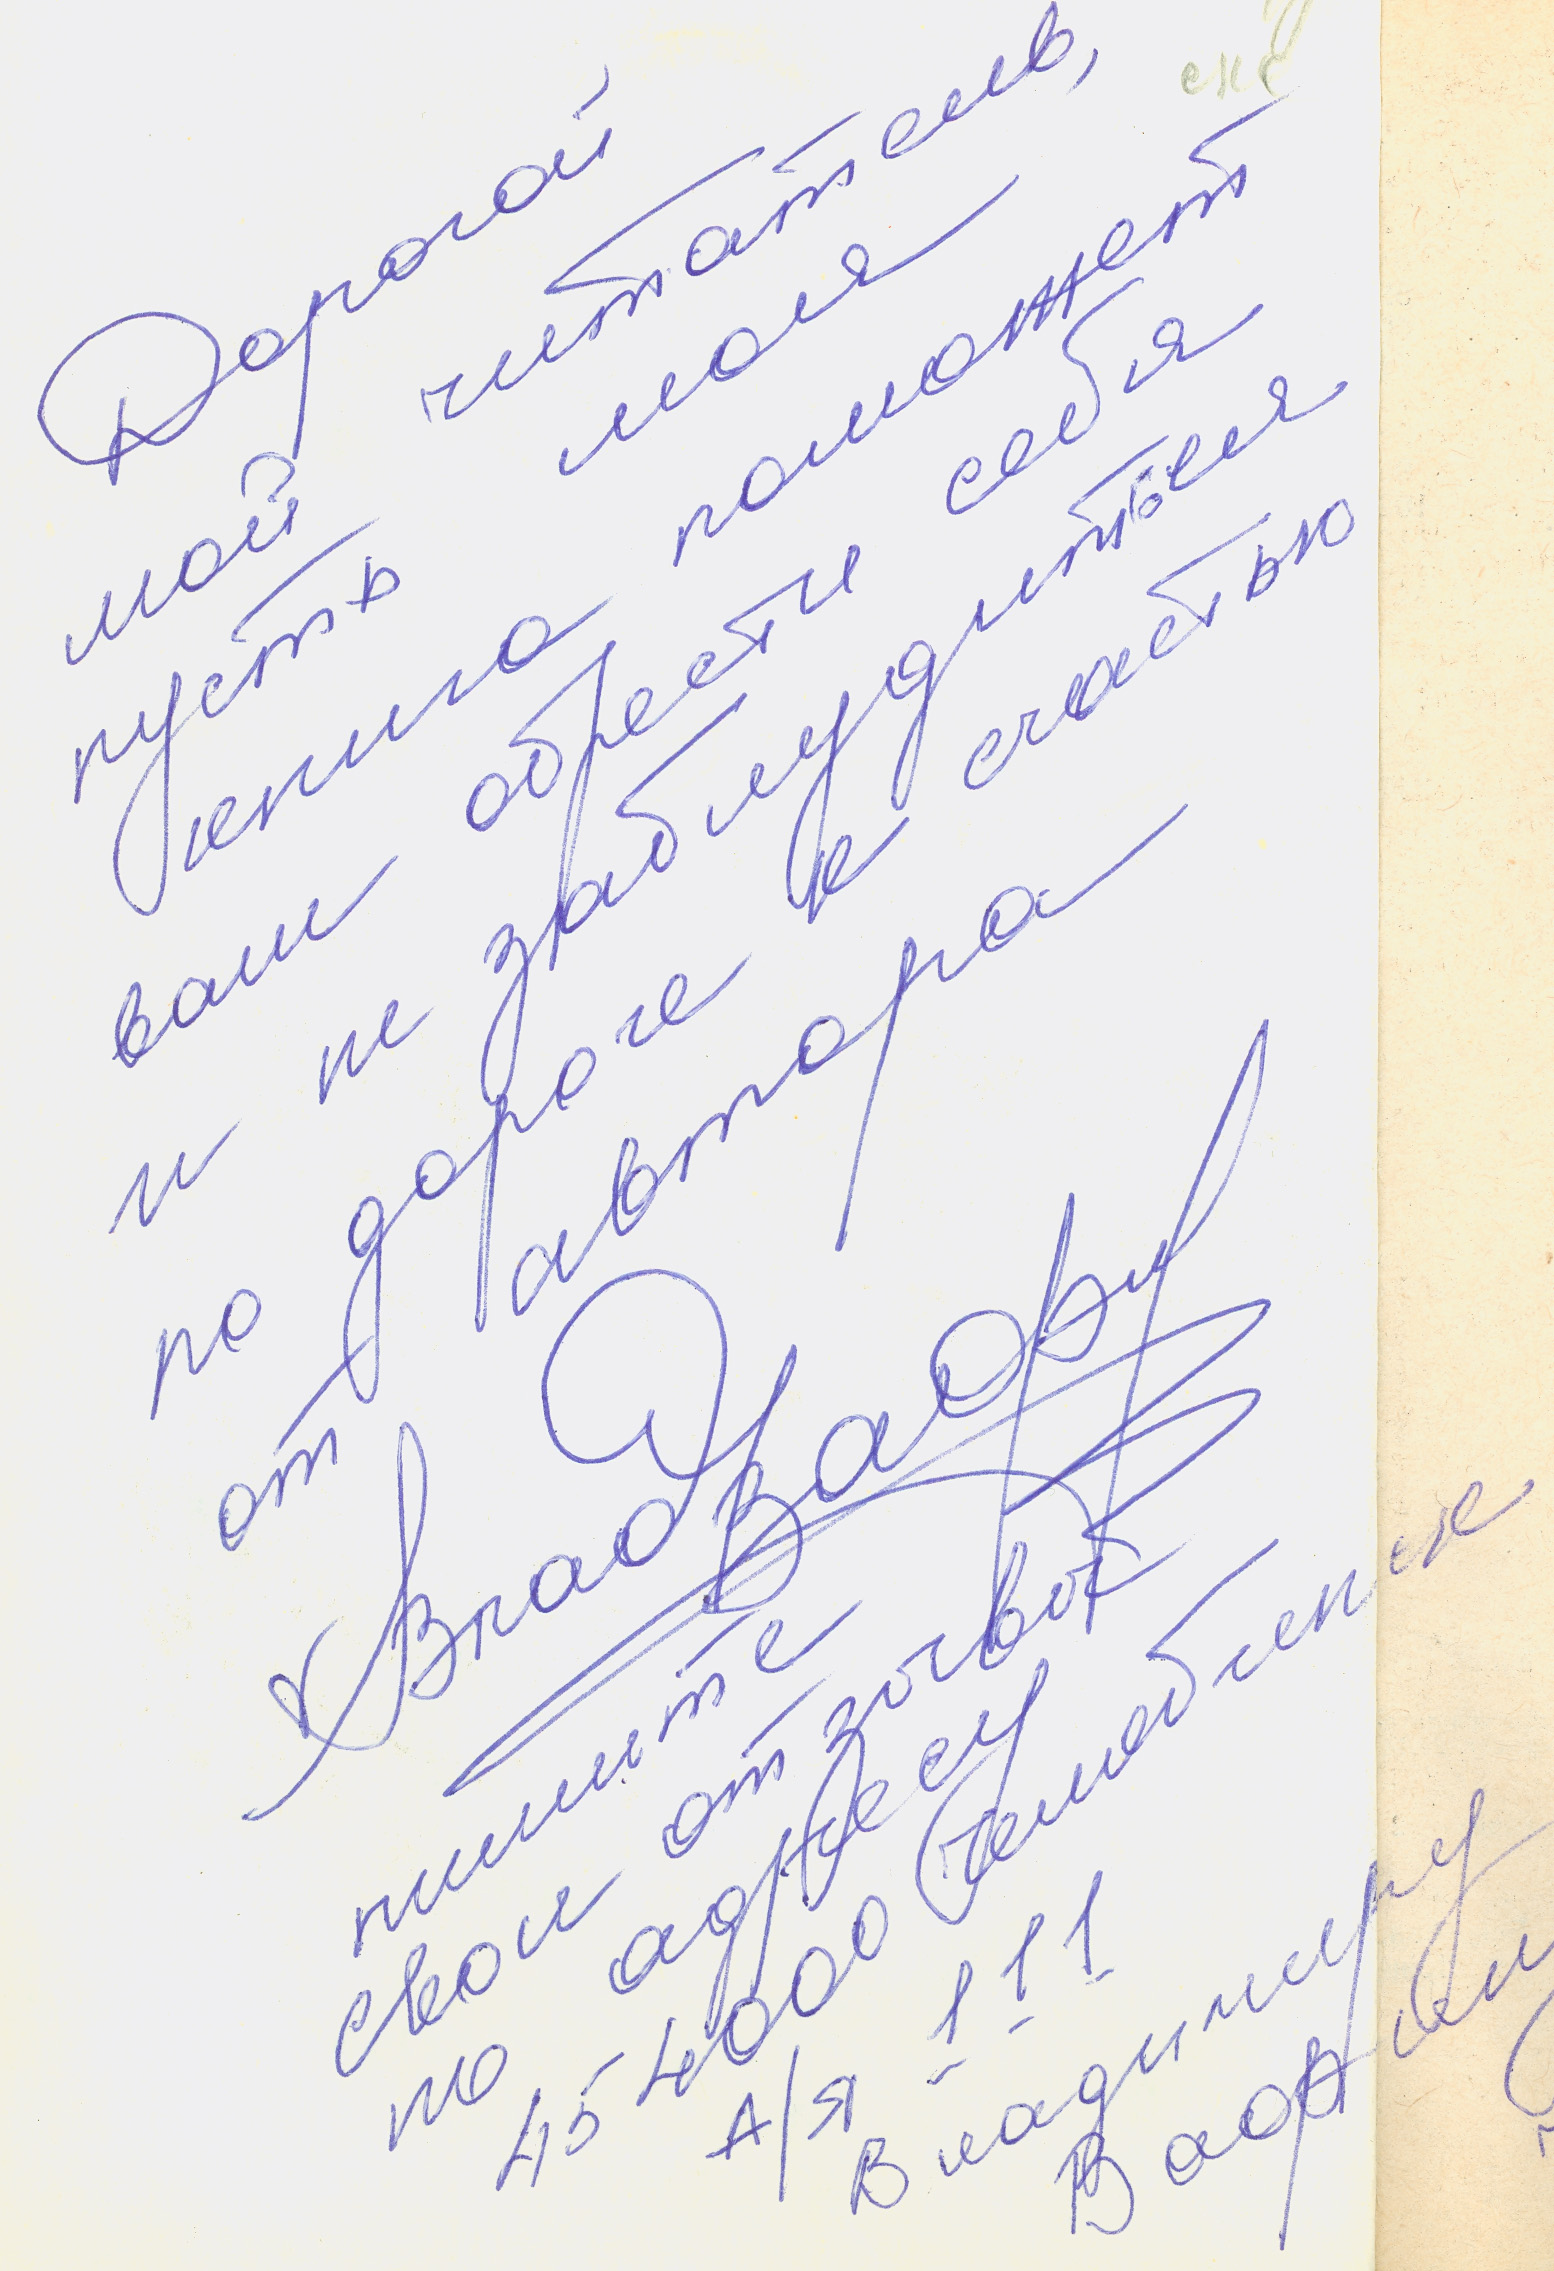 Дорогой
мой читатель,
пусть моя
книга поможет
вам обрести себя
и не заблудиться
по дороге к счастью
от автора
Влад
пишите
свои отзывы
по адресу
454000 Челябинск
А/Я 111
Владимиру